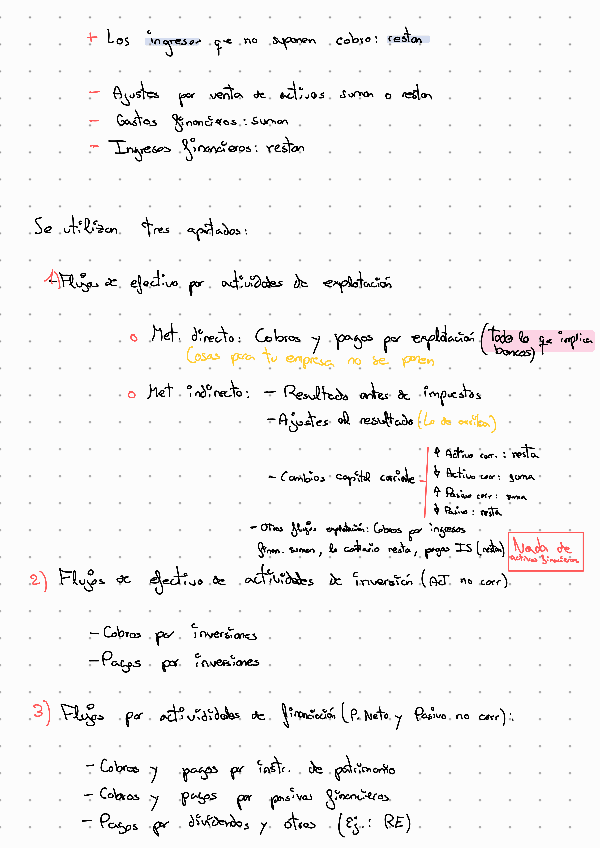 + Los ingresos que no suponen cobro: restan
- Ajustes por venta de activos suman o restan
- Gastos financieros: suman
- Ingresos financieros: restan
Se utilizan tres apartados:
1) Flujos de efectivo por actividades de explotación
o Met. directo: Cobros y pagos por explotación (Todo lo que implica
bancos)
Cosas para tu empresa no se ponen
o Met indirecto: - Resultado antes de impuestos
- Ajustes al resultado (Lo de arriba)
- Cambios capital corriente
↑ Activo corr.: resta
↓ Activo corr: suma
↑ Pasivo corr: suma
↓ Pasivo: resta
- Otros flujos explotación: Cobros por ingresos
finan. suman, lo contrario resta, pagos IS (restan)
Nada de
activos financieros
2) Flujos de efectivo de actividades de inversión (AT. no corr).
- Cobros por inversiones
- Pagos por inversiones
3) Flujos por activididades de financiación (P. Neto y Pasivo no corr):
- Cobros y pagos por instr. de patrimonio
- Cobros y pagos por pasivos financieros
- Pagos por dividendos y otros (Ej.: RE)